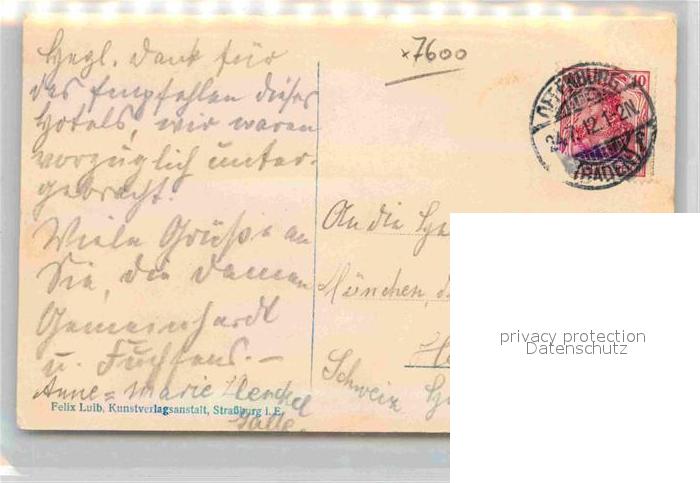 x7600
Hezl. Dank für
das Empfehlen dieses
Hotels, wir waren
vorzüglich unter-
gebracht.
Viele Grüße an
Sie, die Damen
Gemeinhardt
u. Fuchtens.-
Anne-Marie Henckel
Felix Luib, Kunstverlagsanstalt, Straßburg i.E.
10
OFFENBURG
24.7.12.1-2N.
(BADEN)
An die
München,
Schweiz
privacy protection
Datenschutz